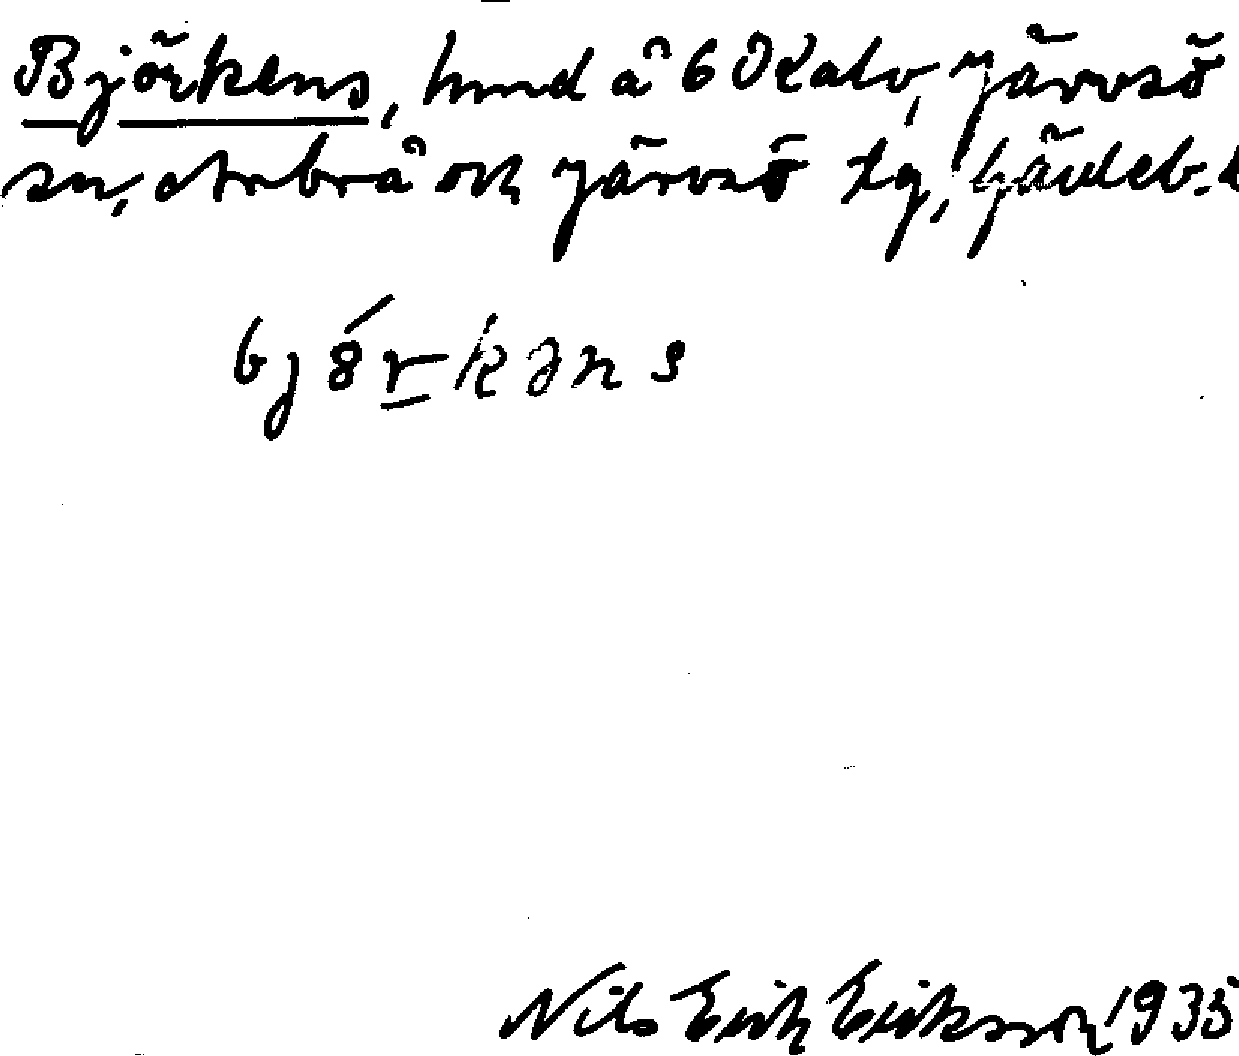 Björkens, hmd å 6 Kalv, Järvsö
sn, Arbrå och Järvsö tg, Gävleb. l
bjö́rkəns
Nils Erik Eriksson 1935